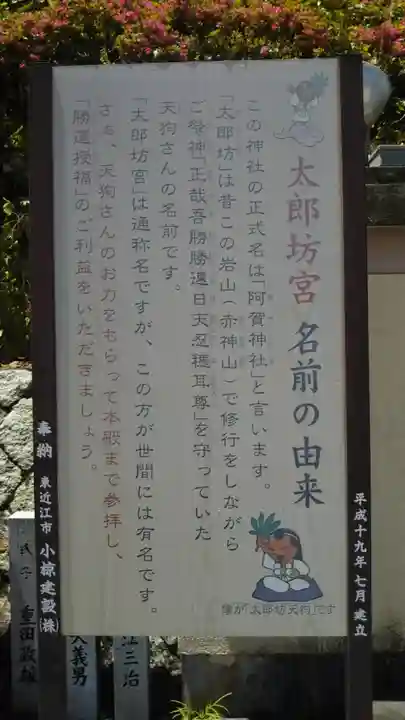 太郎坊宮 名前の由来
この神社の正式名は「阿賀神社」と言います。
「太郎坊」は昔この岩山（赤神山）で修行をしながら
ご祭神「正哉吾勝勝速日天忍穂耳尊」を守っていた
天狗さんの名前です。
「太郎坊宮」は通称名ですが、この方が世間には有名です。
さぁ、天狗さんのお力をもらって本殿まで参拝し、
「勝運授福」のご利益をいただきましょう。
僕が「太郎坊天狗」です
平成十九年七月 建立
奉納 東近江市 小椋建設㈱